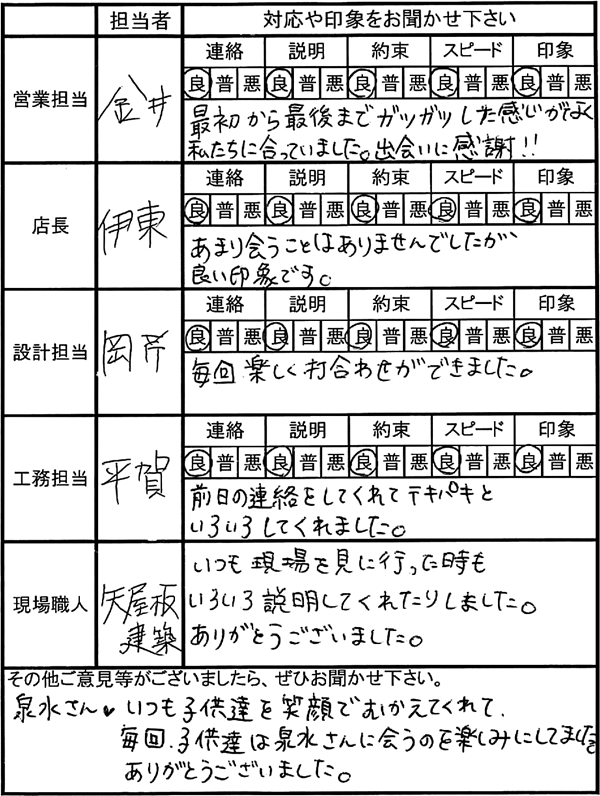 担当者 対応や印象をお聞かせ下さい
営業担当 金井
連絡 説明 約束 スピード 印象
良 普 悪 良 普 悪 良 普 悪 良 普 悪 良 普 悪
最初から最後までガツガツした感じがなく
私たちに合っていました。出会いに感謝!!
店長 伊東
連絡 説明 約束 スピード 印象
良 普 悪 良 普 悪 良 普 悪 良 普 悪 良 普 悪
あまり会うことはありませんでしたが、
良い印象です。
設計担当 岡芹
連絡 説明 約束 スピード 印象
良 普 悪 良 普 悪 良 普 悪 良 普 悪 良 普 悪
毎回 楽しく打合わせができました。
工務担当 平賀
連絡 説明 約束 スピード 印象
良 普 悪 良 普 悪 良 普 悪 良 普 悪 良 普 悪
前日の連絡をしてくれて テキパキと
いろいろしてくれました。
現場職人 矢屋板
建築
いつも現場を見に行った時も
いろいろ説明してくれたりしました。
ありがとうございました。
その他ご意見等がございましたら、ぜひお聞かせ下さい。
泉水さん♥ いつも子供達を笑顔でむかえてくれて、
毎回、子供達は泉水さんに会うのを楽しみにしてました
ありがとうございました。